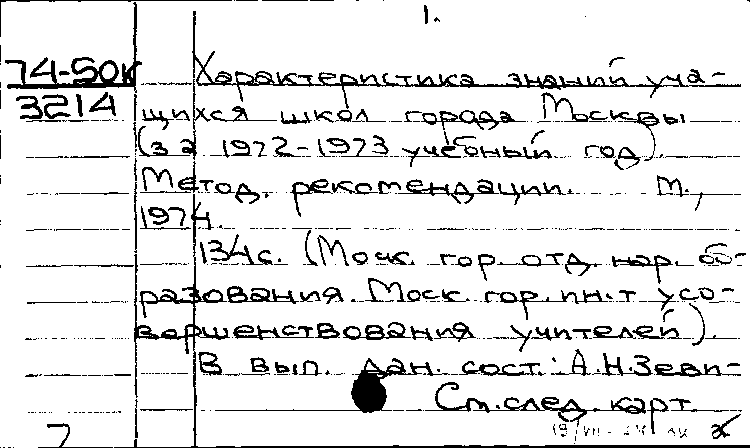 1.
74-50к
3214
Характеристика знаний уча-
щихся школ города Москвы
(за 1972-1973 учебный год).
Метод. рекомендации. М.,
1974.
134с. (Моск. гор. отд. нар. об-
разования. Моск. гор. ин-т усо-
вершенствования учителей).
В вып. дан. сост.: А.Н.Зеви-
См.след. карт.
7